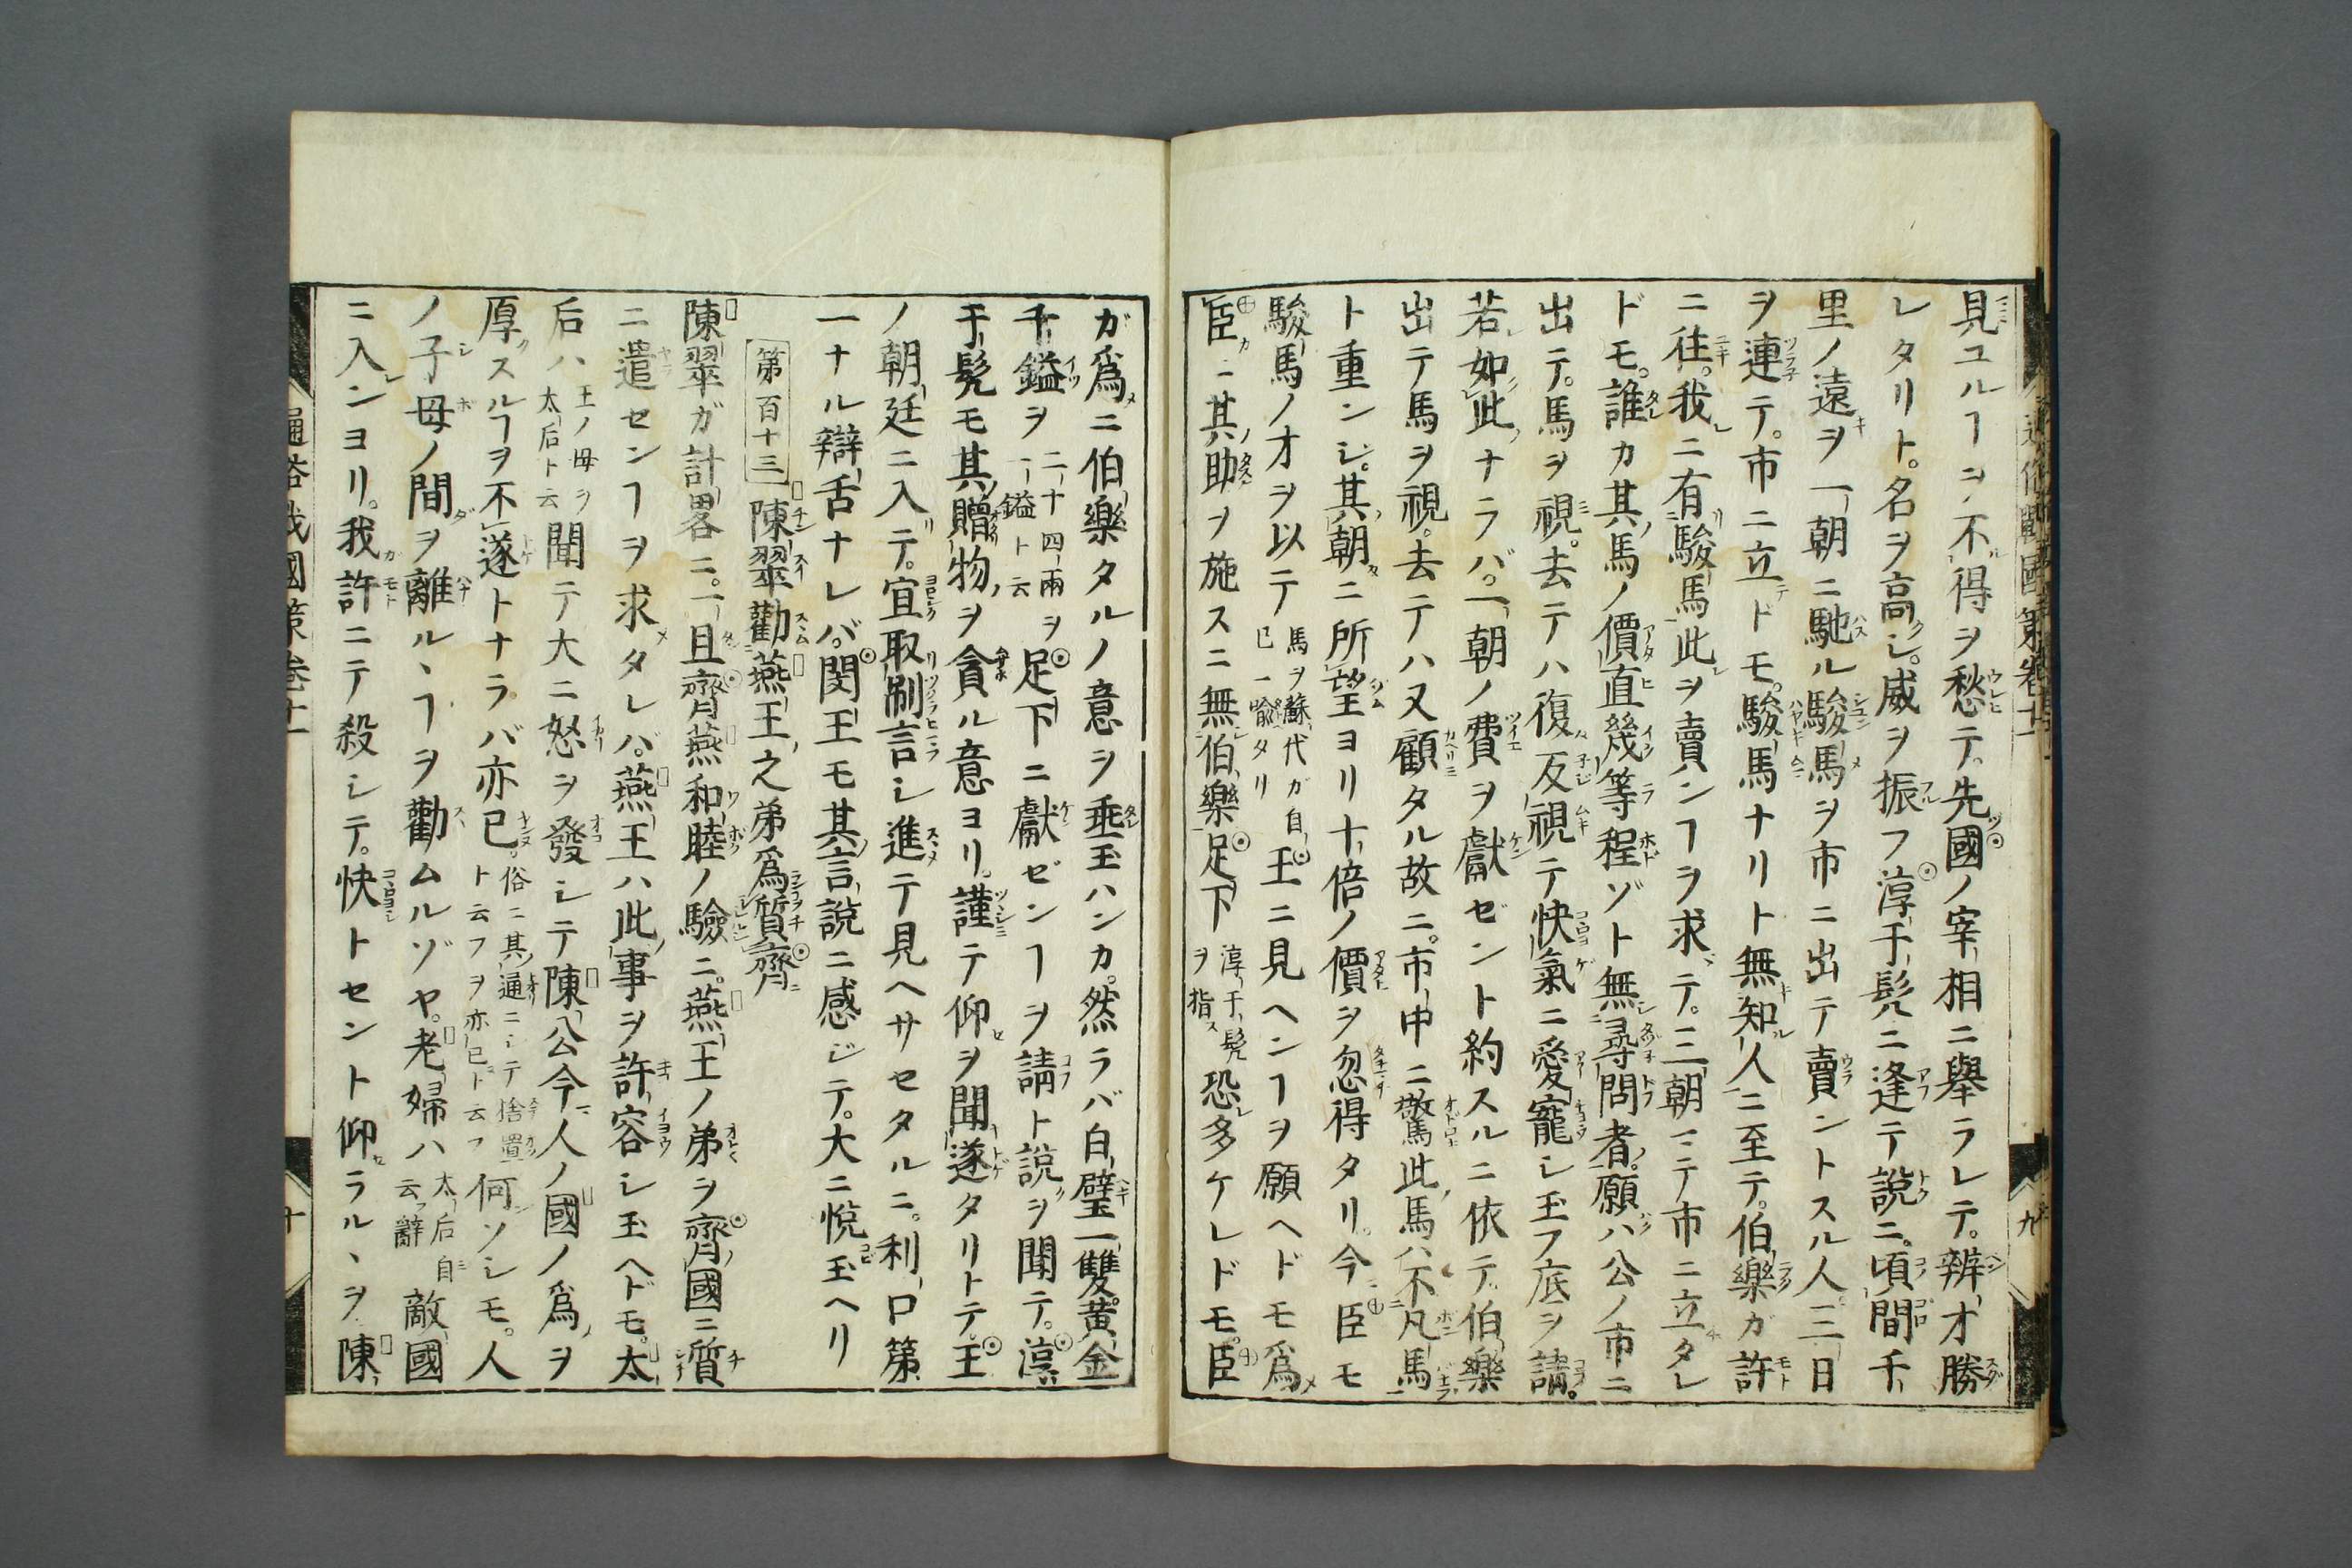 見ユルヿヲ不得ヲ愁テ。先國ノ宰相ニ舉ラレテ。辨才勝
レタリト。名ヲ高シ。威ヲ振フ淳于髡ニ逢テ說ニ。頃間千
里ノ遠ヲ一朝ニ馳ル駿馬ヲ市ニ出テ賣ントスル人。三日
ヲ連テ。市ニ立ドモ。駿馬ナリト無知人ニ至テ。伯樂ガ許
ニ往。我ニ有駿馬此ヲ賣ンヿヲ求テ。三朝ニテ市ニ立タレ
ドモ。誰カ其馬ノ價直幾等程ゾト無尋問者。願ハ公ノ市ニ
出テ。馬ヲ視。去テハ復反視テ快氣ニ愛寵シ玉フ底ヲ請。
若如此ナラバ。一朝ノ費ヲ獻ゼント約スルニ依テ。伯樂
出テ馬ヲ視。去テハ又顧タル故ニ。市中ニ驚此馬ハ不凡馬
ト重ンジ。其朝ニ所望ヨリ十倍ノ價ヲ忽得タリ。今臣モ
駿馬ノ才ヲ以テ馬ヲ蘇代ガ自己ニ喻タリ王ニ見ヘンヿヲ願ヘドモ爲
臣ニ其助ヲ施スニ無伯樂足下淳于髡ヲ指ス恐多ケレドモ。臣
ガ爲ニ伯樂タルノ意ヲ垂玉ハンカ。然ラバ白璧一雙。黄金
千鎰ヲ二十四兩ヲ一鎰ト云足下ニ獻ゼンヿヲ請ト說ヲ聞テ。淳
于髡モ其贈物ヲ貪ル意ヨリ。謹テ仰ヲ聞遂タリトテ。王
ノ朝廷ニ入テ。宜取制言シ進テ見ヘサセタルニ。利口第
一ナル辯舌ナレバ。閔王モ其言說ニ感ジテ。大ニ悅玉ヘリ
第百十三 陳翠勸燕王之弟爲質齊
陳翠ガ計畧ニ。一且齊燕和睦ノ驗ニ。燕王ノ弟ヲ齊國ニ質
ニ遣センヿヲ求タレバ。燕王ハ此事ヲ許容シ玉ヘドモ。太
后ハ王ノ母ヲ太后ト云聞テ大ニ怒ヲ發シテ陳公今人ノ國ノ爲ヲ
厚スルヿヲ不遂トナラバ亦已。俗ニ其通ニシテ捨置ト云フヲ亦已ト云フ何ソシモ。人
ノ子母ノ間ヲ離ルヽヿヲ勸ムルゾヤ。老婦ハ太后自云フ辭敵國
ニ入ンヨリ。我許ニテ殺シテ。快トセント仰ラルヽヲ陳
通俗戰國策卷十一
十
九